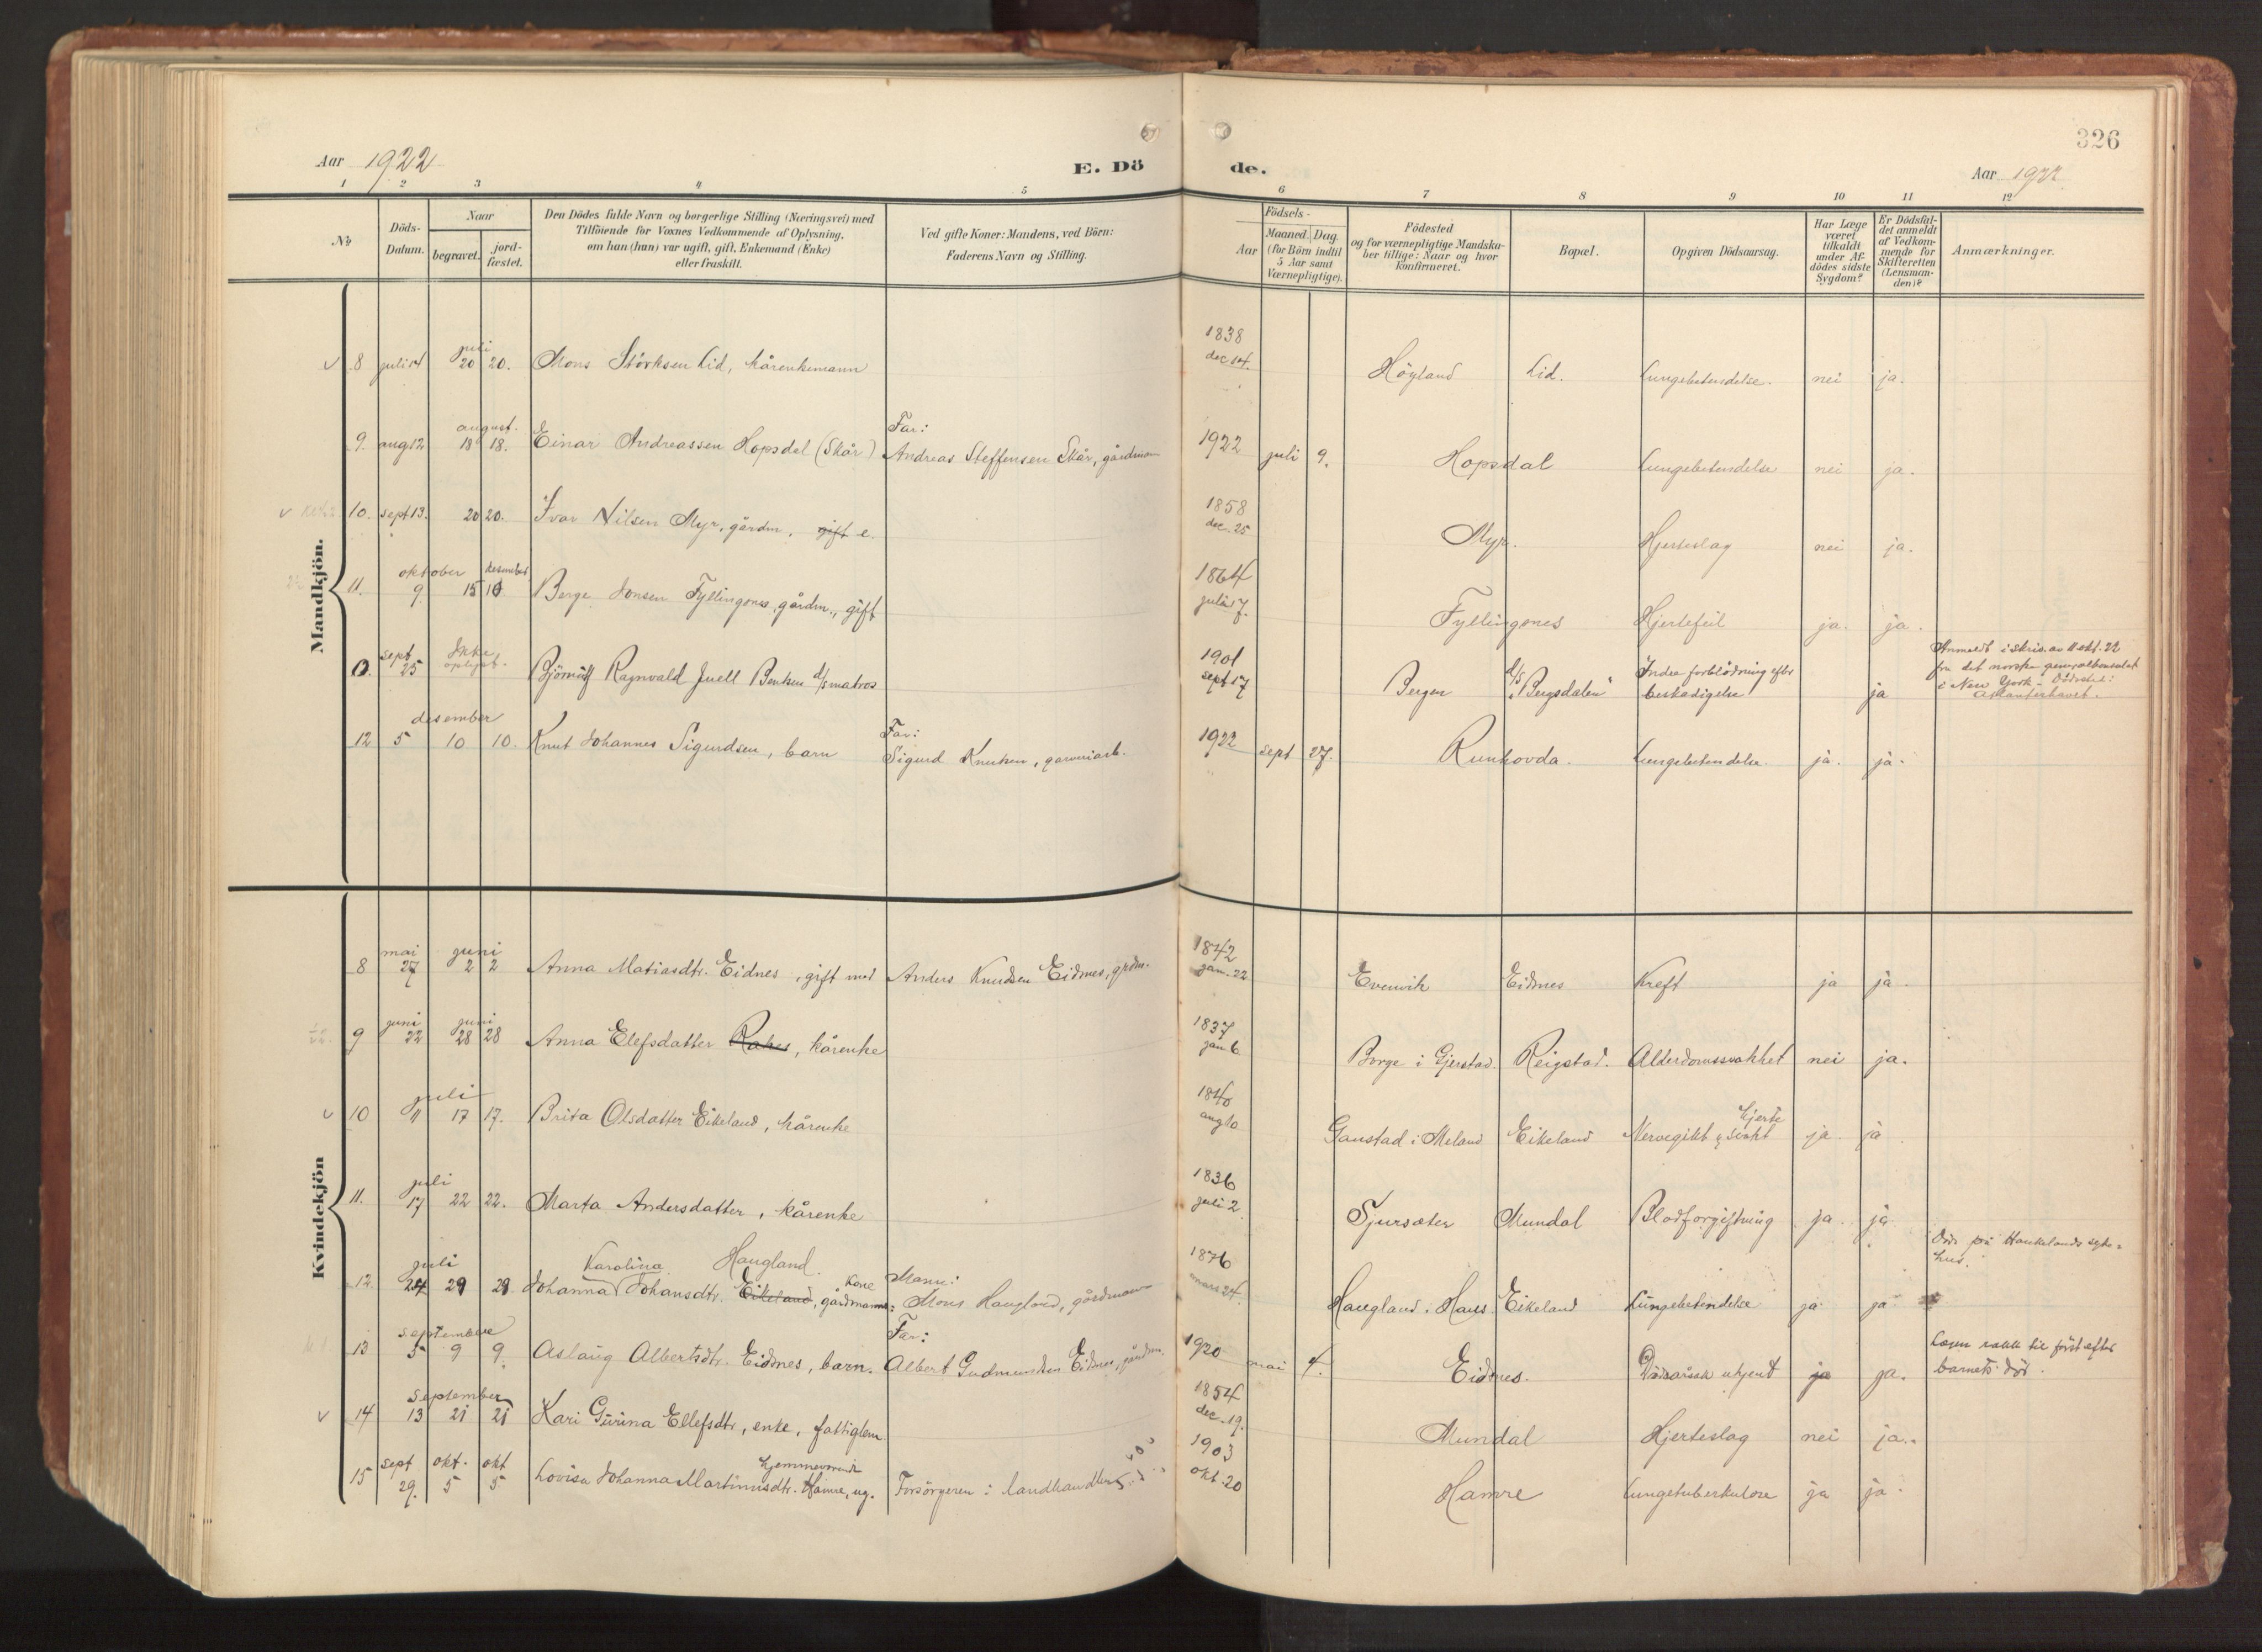 326
Aar 1922
E. Dö de.
Aar 1922
1 2 3 4 5 6 7 8 9 10 11 12
No
Döds-Datum.
Naar
begravet.
jord-fæstet.
Den Dödes fulde Navn og borgerlige Stilling (Næringsvei) med
Tilföiende for Voxnes Vedkommende af Oplysning,
om han (hun) var ugift, gift, Enkemand (Enke)
eller fraskilt.
Ved gifte Koner: Mandens, ved Börn:
Faderens Navn og Stilling.
Födsels-
Aar
Maaned. Dag.
(for Börn indtil
5 Aar samt
Værnepligtige).
Födested
og for værnepligtige Mandska-
ber tillige: Naar og hvor
konfirmeret.
Bopæl.
Opgiven Dödsaarsag.
Har Læge
været
tilkaldt
under Af-
dödes sidste
Sygdom?
Er Dödsfal-
det anmeldt
af Vedkom-
mende for
Skifteretten
(Lensman-
den)?
Anmærkninger.
Mandkjön.
8 juli 14 juli 20 20. Mons Störksen Lid, kårenkemann 1838 dec 14. Höyland Lid. Lungebetendelse. nei ja.
9. aug 12 august. 18 18. Einar Andreassen Hopsdal (Skår) Far: Andreas Steffensen Skår, gårdman 1922 juli 9. Hopsdal Lungebetendelse nei ja.
10. sept 13. 20 20. Ivar Nilsen Myr, gårdm. gift e. 1858 dec. 25 Myr. Hjerteslag nei ja.
11. oktober 9 15 desember 10 Berge Jonsen Fyllingsnes, gårdm., gift 1864 juli 17. Fyllingsnes Hjertefeil ja. ja.
0. sept 25 Ikke oplyst. Ragnvald Juell d/s matros 1901 sept 17 Bergen d/s "Bergsdalen" Indre forblödning efter beskadigelse ja
Anmeldt i skriv. av 11 okt. 22
fra det norske generalkonsulat
i New York - Dödssted:
Atlanterhavet.
12 desember 5 10 10. Knut Johannes Sigurdsen, barn Far: Sigurd Knutsen, garveriarb. 1922 sept 27. Runhovda. Lungebetendelse. ja. ja.
Kvindekjön
8 mai 27 juni 2 2 Anna Matiasdtr. Eidnes, gift med Anders Knudsen Eidnes, grdm. 1842 jan. 22 Evenvik Eidnes Kreft ja ja.
9 juni 22 juni 28 28 Anna Elefsdatter, kårenke 1837 jan 6 Borge i Gjerstad. Reigstad. Alderdomssvakhet nei ja.
10 juli 11 17 17. Brita Olsdatter Eikeland, kårenke 1840 aug 10 Gaustad i Meland Eikeland Nervegikt & hjerte ja. ja
11. juli 17 22 22. Marta Andersdatter, kårenke 1836 juli 2. Sjursæter Mundal Blodforgiftning ja. ja
12. juli 24 29 29 Johanna Karolina Johansdtr. Eikeland Haugland, gårdmanns kone Mann: Mons Haugland, gårdmann 1876 mars 24. Haugland i Haus Eikeland Lungebetendelse ja. ja.
Död på Haukelands syke-
hus.
13 september 5 9 9. Aslaug Albertsdtr. Eidnes, barn. Far: Albert Gudmundsen Eidnes, gårdm. 1920 mai 4. Eidnes. Dödsårsak ukjent ja ja.
Lægen rakk til först efter
barnets död.
14 september 13 21 21 Kari Gurina Ellefsdtr, enke, fattiglem. 1854 dec. 19. Mundal Hjerteslag nei ja.
15 sept 29. okt. 5 okt 5 Lovisa Johanna Martinusdtr. Hamre, ug. hjemmeværende Forsörgeren: landhandler 1903 okt. 20 Hamre Lungetuberkulose ja ja.